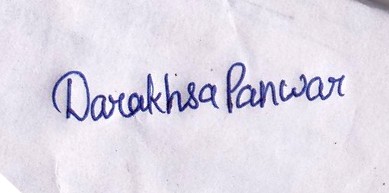 Darakhsa Panwar